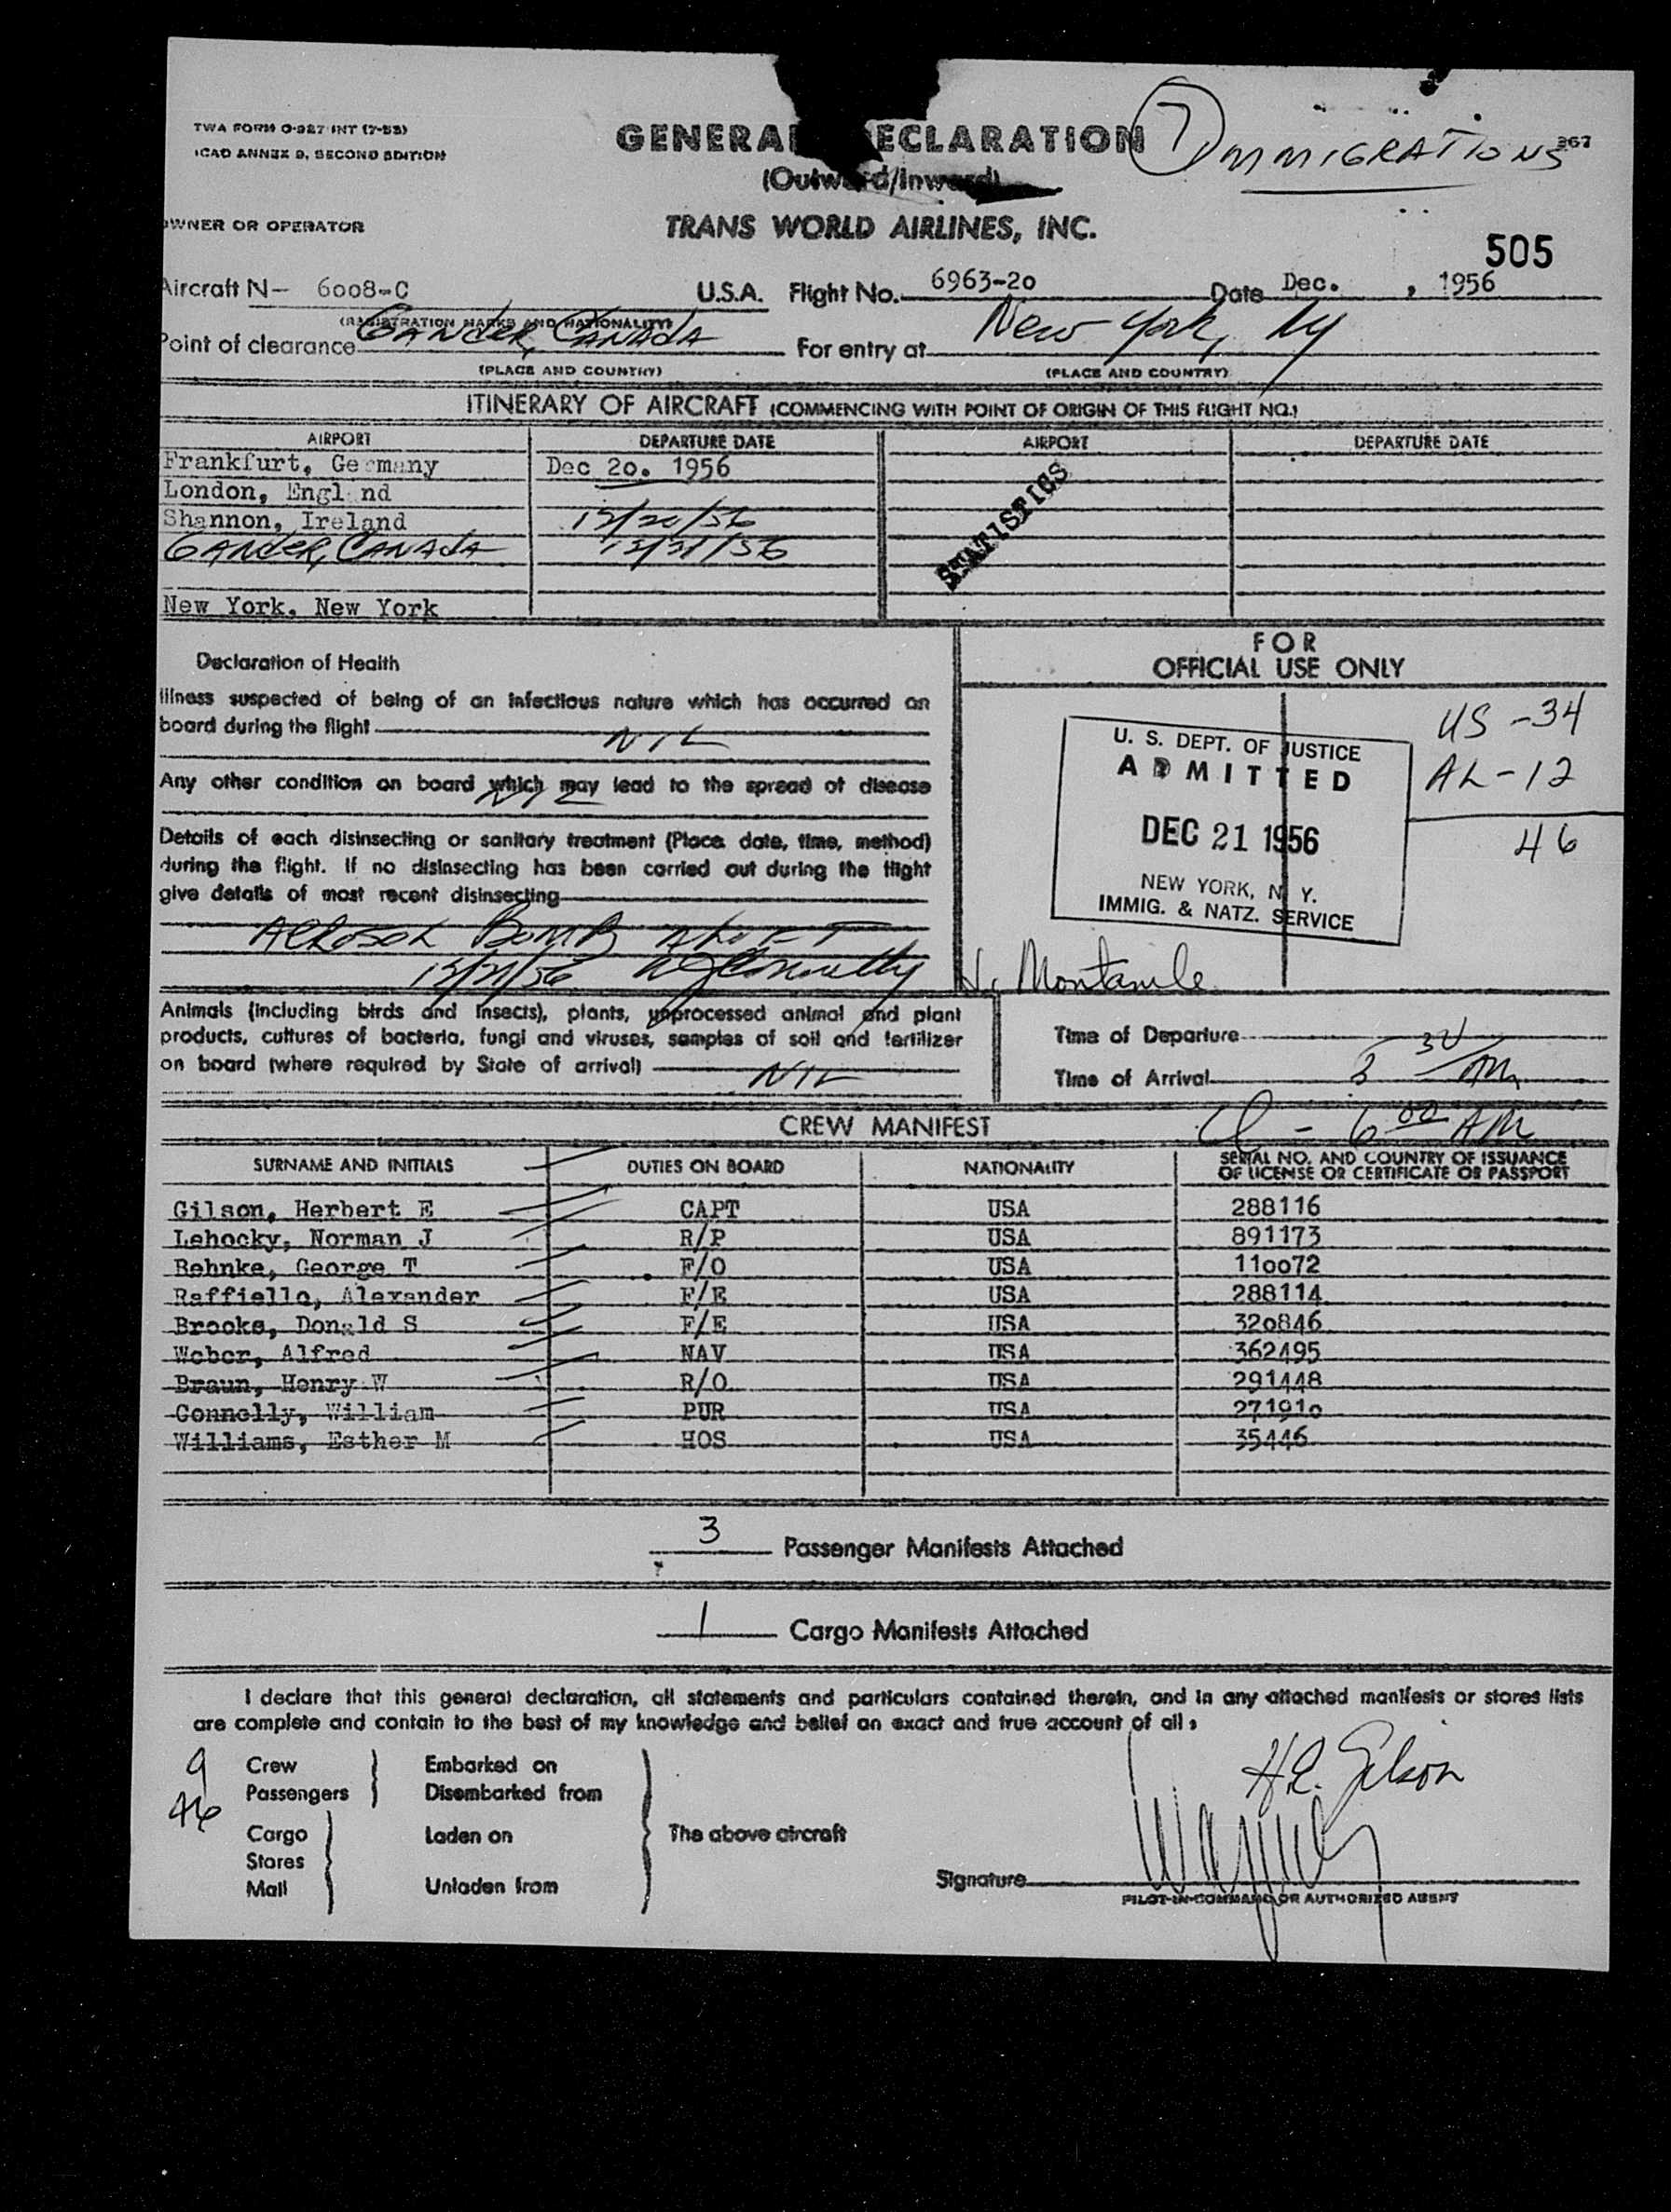 TWA FORM O-927 INT (7-53)
ICAO ANNEX 9, SECOND EDITION
GENERAL DECLARATION
(Outward/Inward)
IMMIGRATIONS
367
OWNER OR OPERATOR
TRANS WORLD AIRLINES, INC.
505
Aircraft N- 6008-C U.S.A. Flight No. 6963-20 Date Dec. , 1956
(REGISTRATION MARKS AND NATIONALITY)
Point of clearance GANDER, CANADA For entry at New York, NY
(PLACE AND COUNTRY) (PLACE AND COUNTRY)
ITINERARY OF AIRCRAFT (COMMENCING WITH POINT OF ORIGIN OF THIS FLIGHT NO.)
AIRPORT DEPARTURE DATE AIRPORT DEPARTURE DATE
Frankfurt, Germany Dec 20. 1956
London, England
Shannon, Ireland 12/20/56
GANDER, CANADA 12/21/56
STATISTICS
New York. New York
Declaration of Health
Illness suspected of being of an infectious nature which has occurred on
board during the flight NIL
Any other condition on board which may lead to the spread of disease
NIL
Details of each disinsecting or sanitary treatment (Place, date, time, method)
during the flight. If no disinsecting has been carried out during the flight
give details of most recent disinsecting
AEROSOL BOMB ALOFT
12/21/56 WJConnolly
FOR
OFFICIAL USE ONLY
U. S. DEPT. OF JUSTICE
ADMITTED
DEC 21 1956
NEW YORK, N. Y.
IMMIG. & NATZ. SERVICE
US -34
AL -12
46
Animals (including birds and insects), plants, unprocessed animal and plant
products, cultures of bacteria, fungi and viruses, samples of soil and fertilizer
on board (where required by State of arrival) NIL
Time of Departure
Time of Arrival
6 00 AM
CREW MANIFEST
SURNAME AND INITIALS DUTIES ON BOARD NATIONALITY SERIAL NO. AND COUNTRY OF ISSUANCE
OF LICENSE OR CERTIFICATE OR PASSPORT
Gilson, Herbert E CAPT USA 288116
Lehocky, Norman J R/P USA 891173
Behnke, George T F/O USA 110072
Raffiello, Alexander F/E USA 288114
Brooks, Donald S F/E USA 320846
Weber, Alfred NAV USA 362495
Braun, Henry W R/O USA 291448
Connolly, William PUR USA 271910
Williams, Esther M HOS USA 35446
3 Passenger Manifests Attached
1 Cargo Manifests Attached
I declare that this general declaration, all statements and particulars contained therein, and in any attached manifests or stores lists
are complete and contain to the best of my knowledge and belief an exact and true account of all :
9 Crew Embarked on
46 Passengers Disembarked from
Cargo Laden on The above aircraft
Stores
Mail Unladen from
H.E. Gilson
Signature
PILOT-IN-COMMAND OR AUTHORIZED AGENT